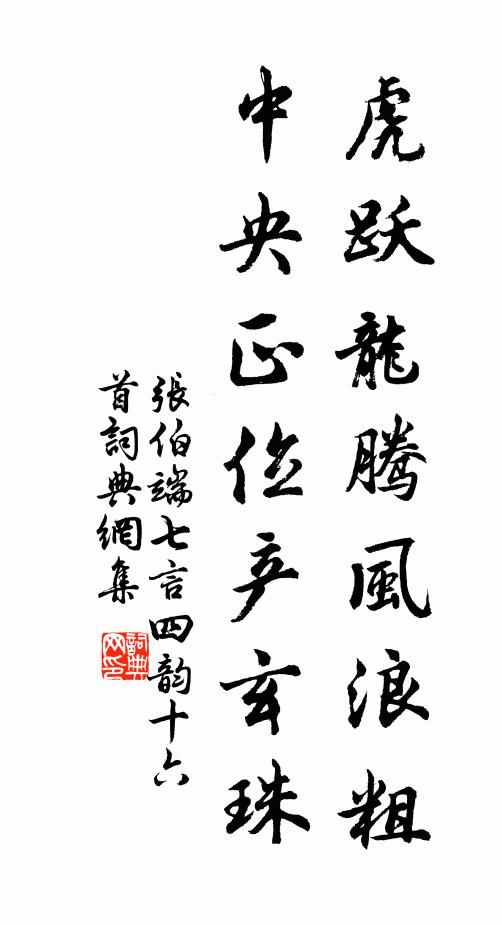 虎跃龍腾風浪粗
中央正位产玄珠
張伯端七言四韵十六
首詞典網集
詞典网印